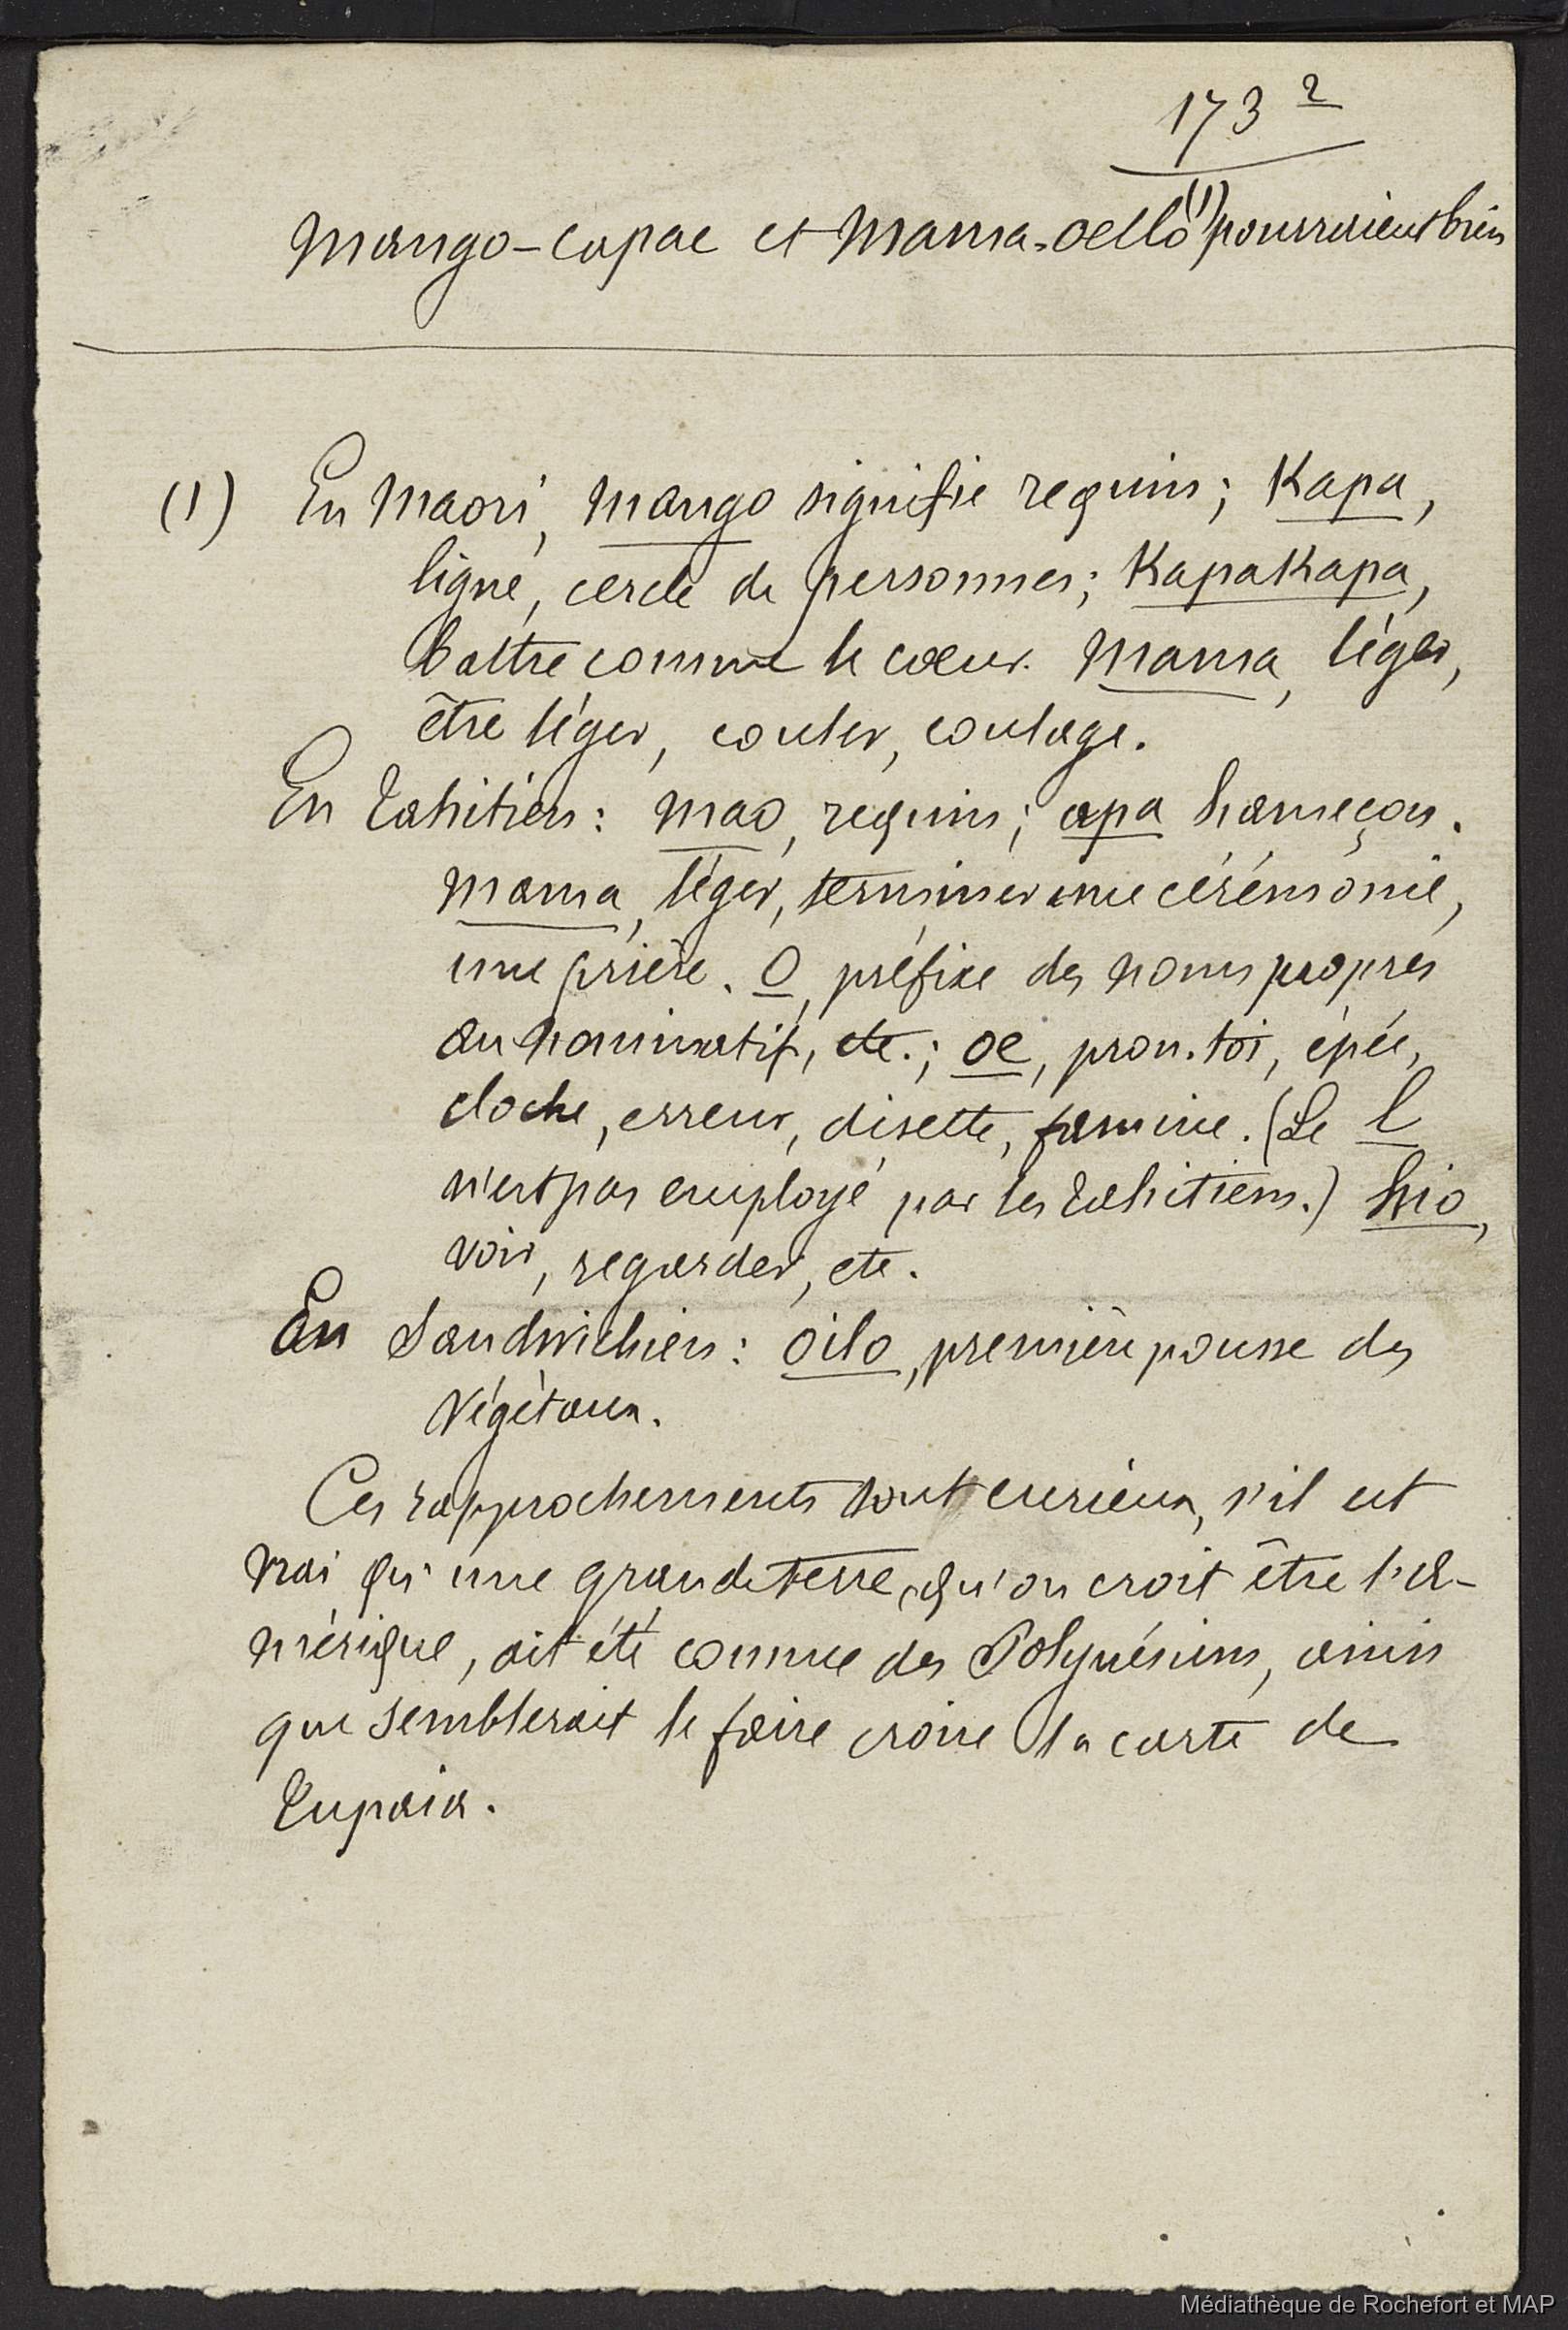 173 2
Mango-Capac et Mama-Oello (1) pourraient bien
(1) En Maori, Mango signifie requin; Kapa,
ligne, cercle de personnes; KapaKapa,
battre comme le cœur. Mama, léger,
être léger, couler, coulage.
En Tahitien: mao, requin; apa hameçon.
Mama, léger, terminer une cérémonie,
une prière. O, préfixe des noms propres
au nominatif, etc.; oe, pron. toi, épée,
cloche, erreur, disette, famine. (Le l
n'est pas employé par les Tahitiens.) hio,
voir, regarder, etc.
En Sandwichien: oilo, première pousse des
végétaux.
Ces rapprochements sont curieux, s'il est
vrai qu'une grande terre, qu'on croit être l'A-
mérique, ait été connue des Polynésiens, ainsi
que semblerait le faire croire la carte de
Tupaia.
Médiathèque de Rochefort et MAP